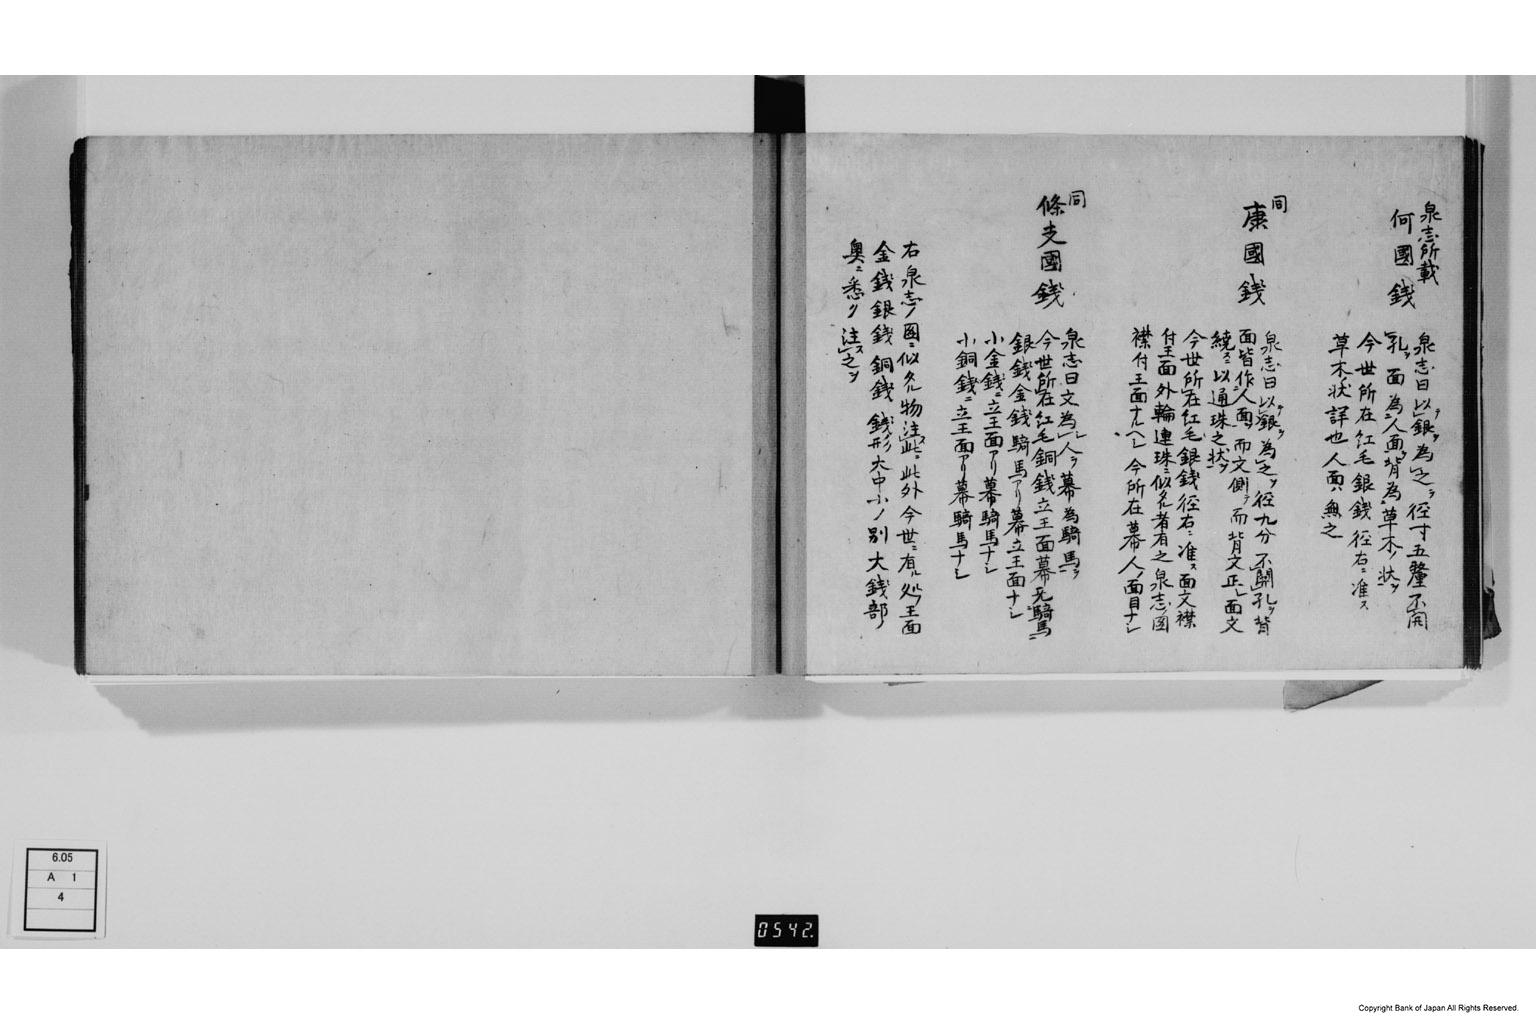 泉志所載
何國錢
泉志曰以テ銀ヲ為之ヲ径寸五釐不開
孔ヲ面為人面ヲ背為草木ノ状ヲ
今世所在紅毛銀錢径右ニ准ス
草木状詳也人面ハ無之
同
康國錢
泉志曰以テ銀ヲ為之ヲ径九分不開孔ヲ背
面皆作人面ヲ而文側テ而背文正シ面文
繞ニ以通珠之状ヲ
今世所在紅毛銀錢径右ニ准ス面文襟
付王面外輪連珠ニ似タル者有之泉志ノ図
襟付王面ナルヘシ今所在幕人ノ面目ナシ
同
條支國錢
泉志曰文為人ヲ幕為騎馬ヲ
今世所在紅毛銅錢立王面幕ニ騎馬
銀錢金錢騎馬アリ幕立王面ナシ
小金錢ニ立王面アリ幕騎馬ナシ
小銅錢ニ立王面アリ幕騎馬ナシ
右泉志ノ図ニ似タル物注ス此ニ此外今世ニ有ル処ノ王面
金錢銀錢銅錢錢形大中小ノ別大錢部ノ
奥ニ悉ク注ス之ヲ
6.05
A 1
4
0542.
Copyright Bank of Japan All Rights Reserved.